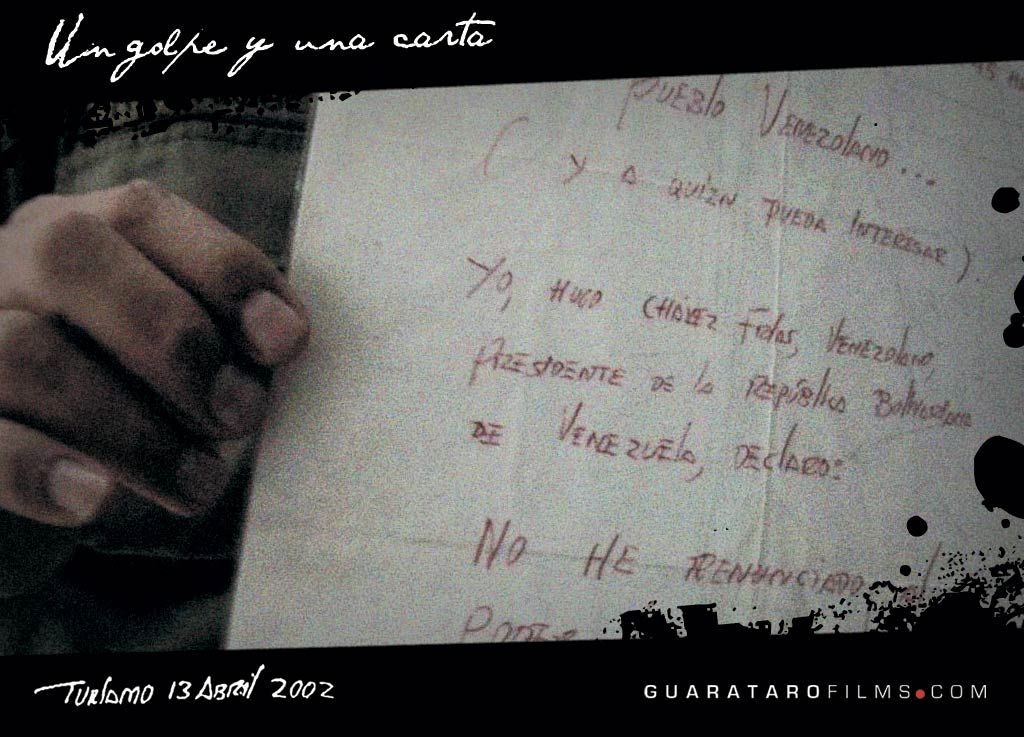 Un golpe y una carta
Pueblo Venezolano...
( y a quien pueda interesar).
Yo, Hugo Chávez Frías, Venezolano,
Presidente de la República Bolivariana
de Venezuela, declaro:
No he renunciado
Turiamo 13 Abril 2002
GUARATAROFILMS.COM